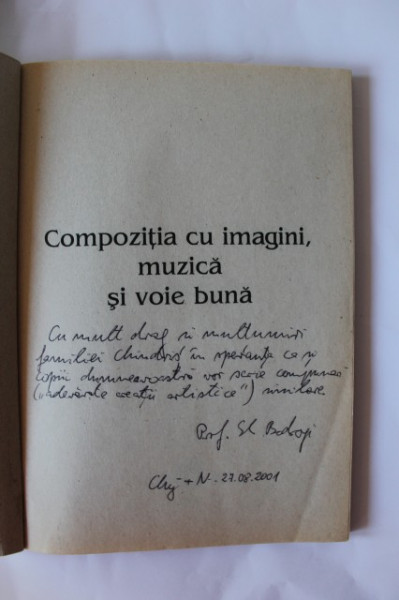 Compoziția cu imagini,
muzică
și voie bună
Cu mult drag și mulțumiri
familiei în speranța ca și
copiii dumneavoastră vor scrie compuneri
("adevărate creații artistice") similare.
Prof.
Cluj-N. 27.08.2001